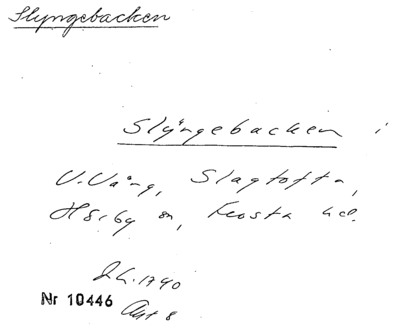 Slyngebacken
Slyngebacken i
V. Vång, Slagtofta,
Hörby sn, Frosta hd.
1740
Nr 10446 Akt 8